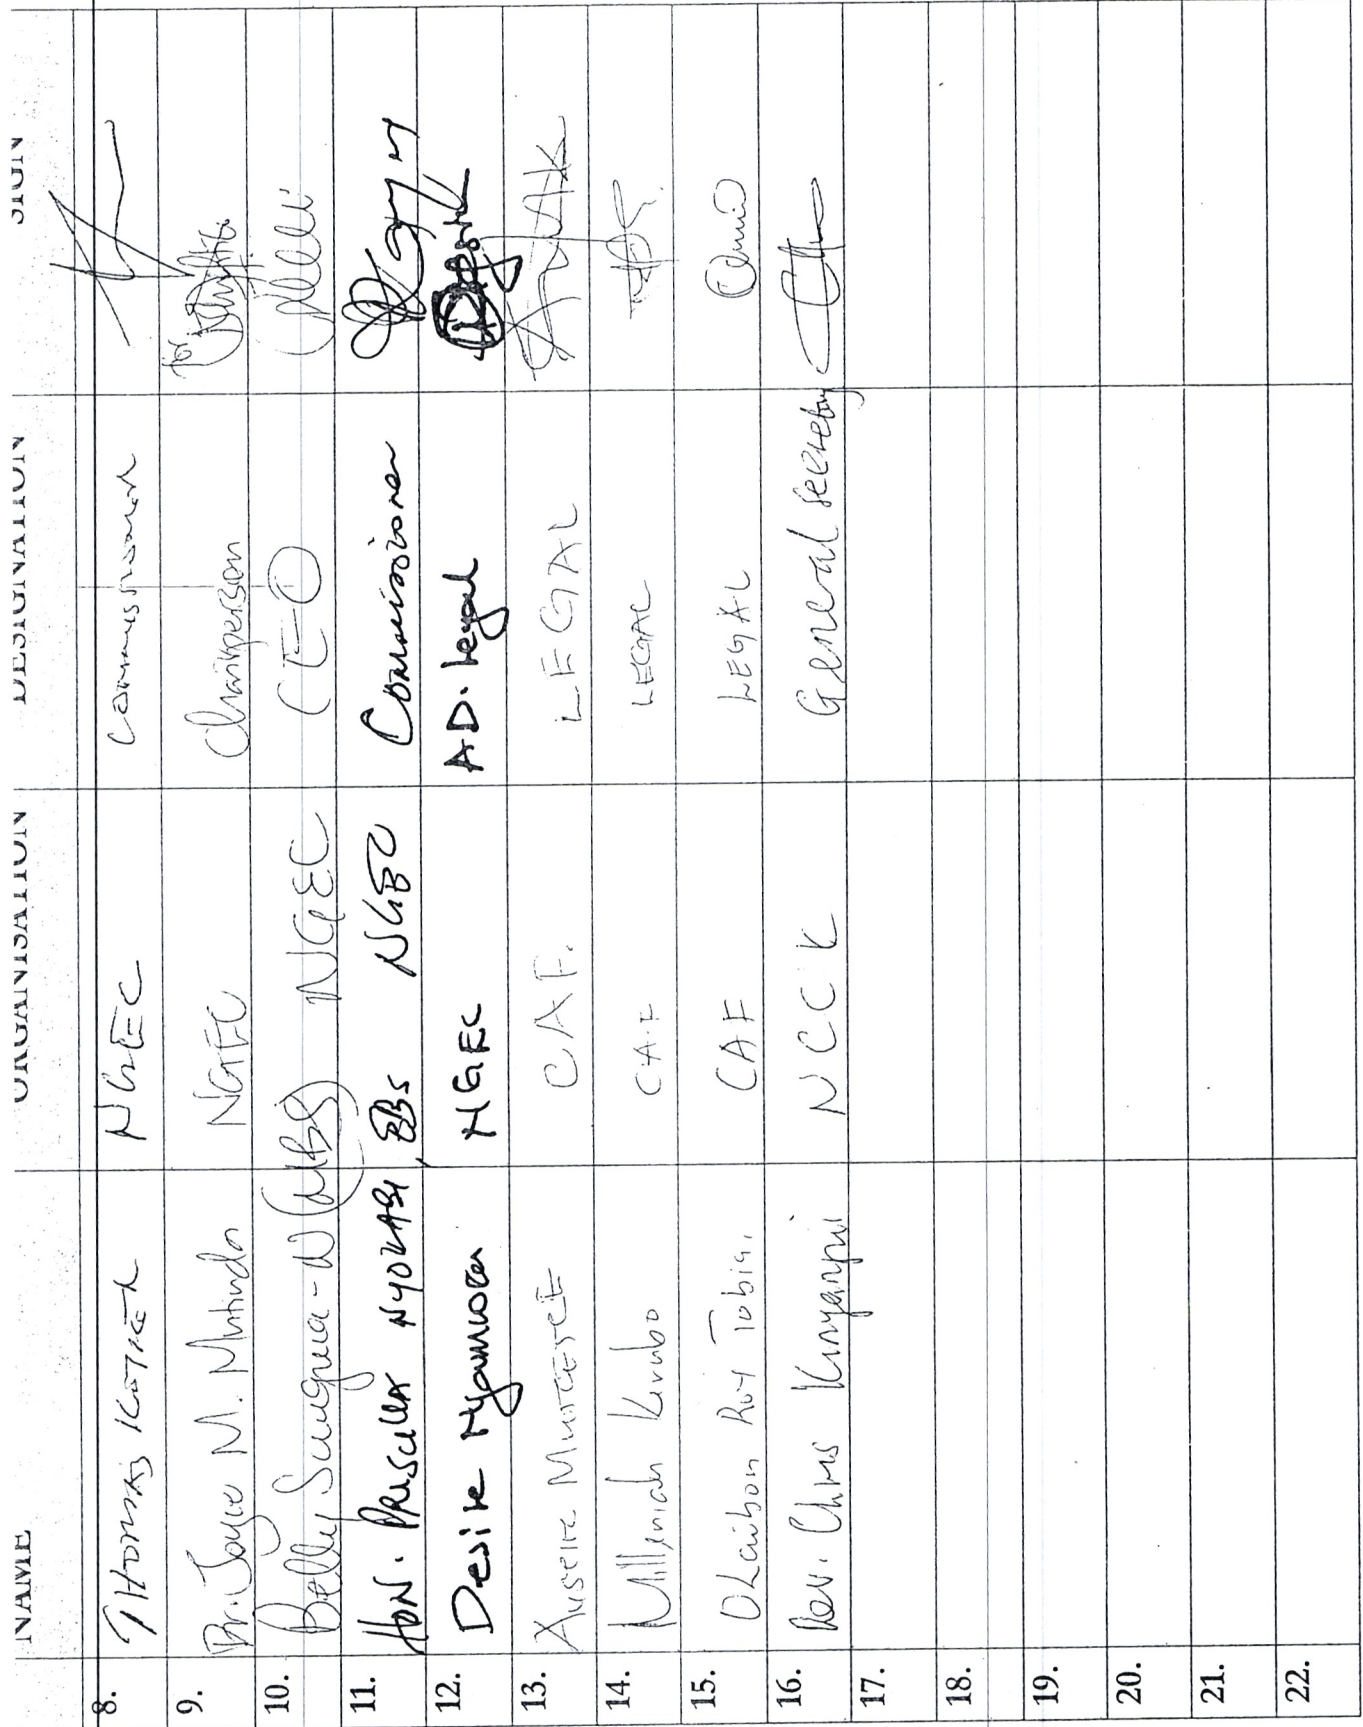 NAME ORGANISATION DESIGNATION SIGN
8. THOMAS KOTHER NGEC Commissioner
9. Dr. Joyce M. Mutinda NGEC Chairperson for
10. Betty Sungura-N (MBS) NGEC CEO
11. HON. PRISCILLA NYOKABI, EBS NGEC Commissioner
12. Desire Nyamwea NGEC AD. Legal
13. CAF. LEGAL
14. Milleniah CAF LEGAL
15. Olkaibon Roy Tobia. CAF LEGAL
16. Rev. Chris Kinyanjui NCCK General Secretary
17.
18.
19.
20.
21.
22.